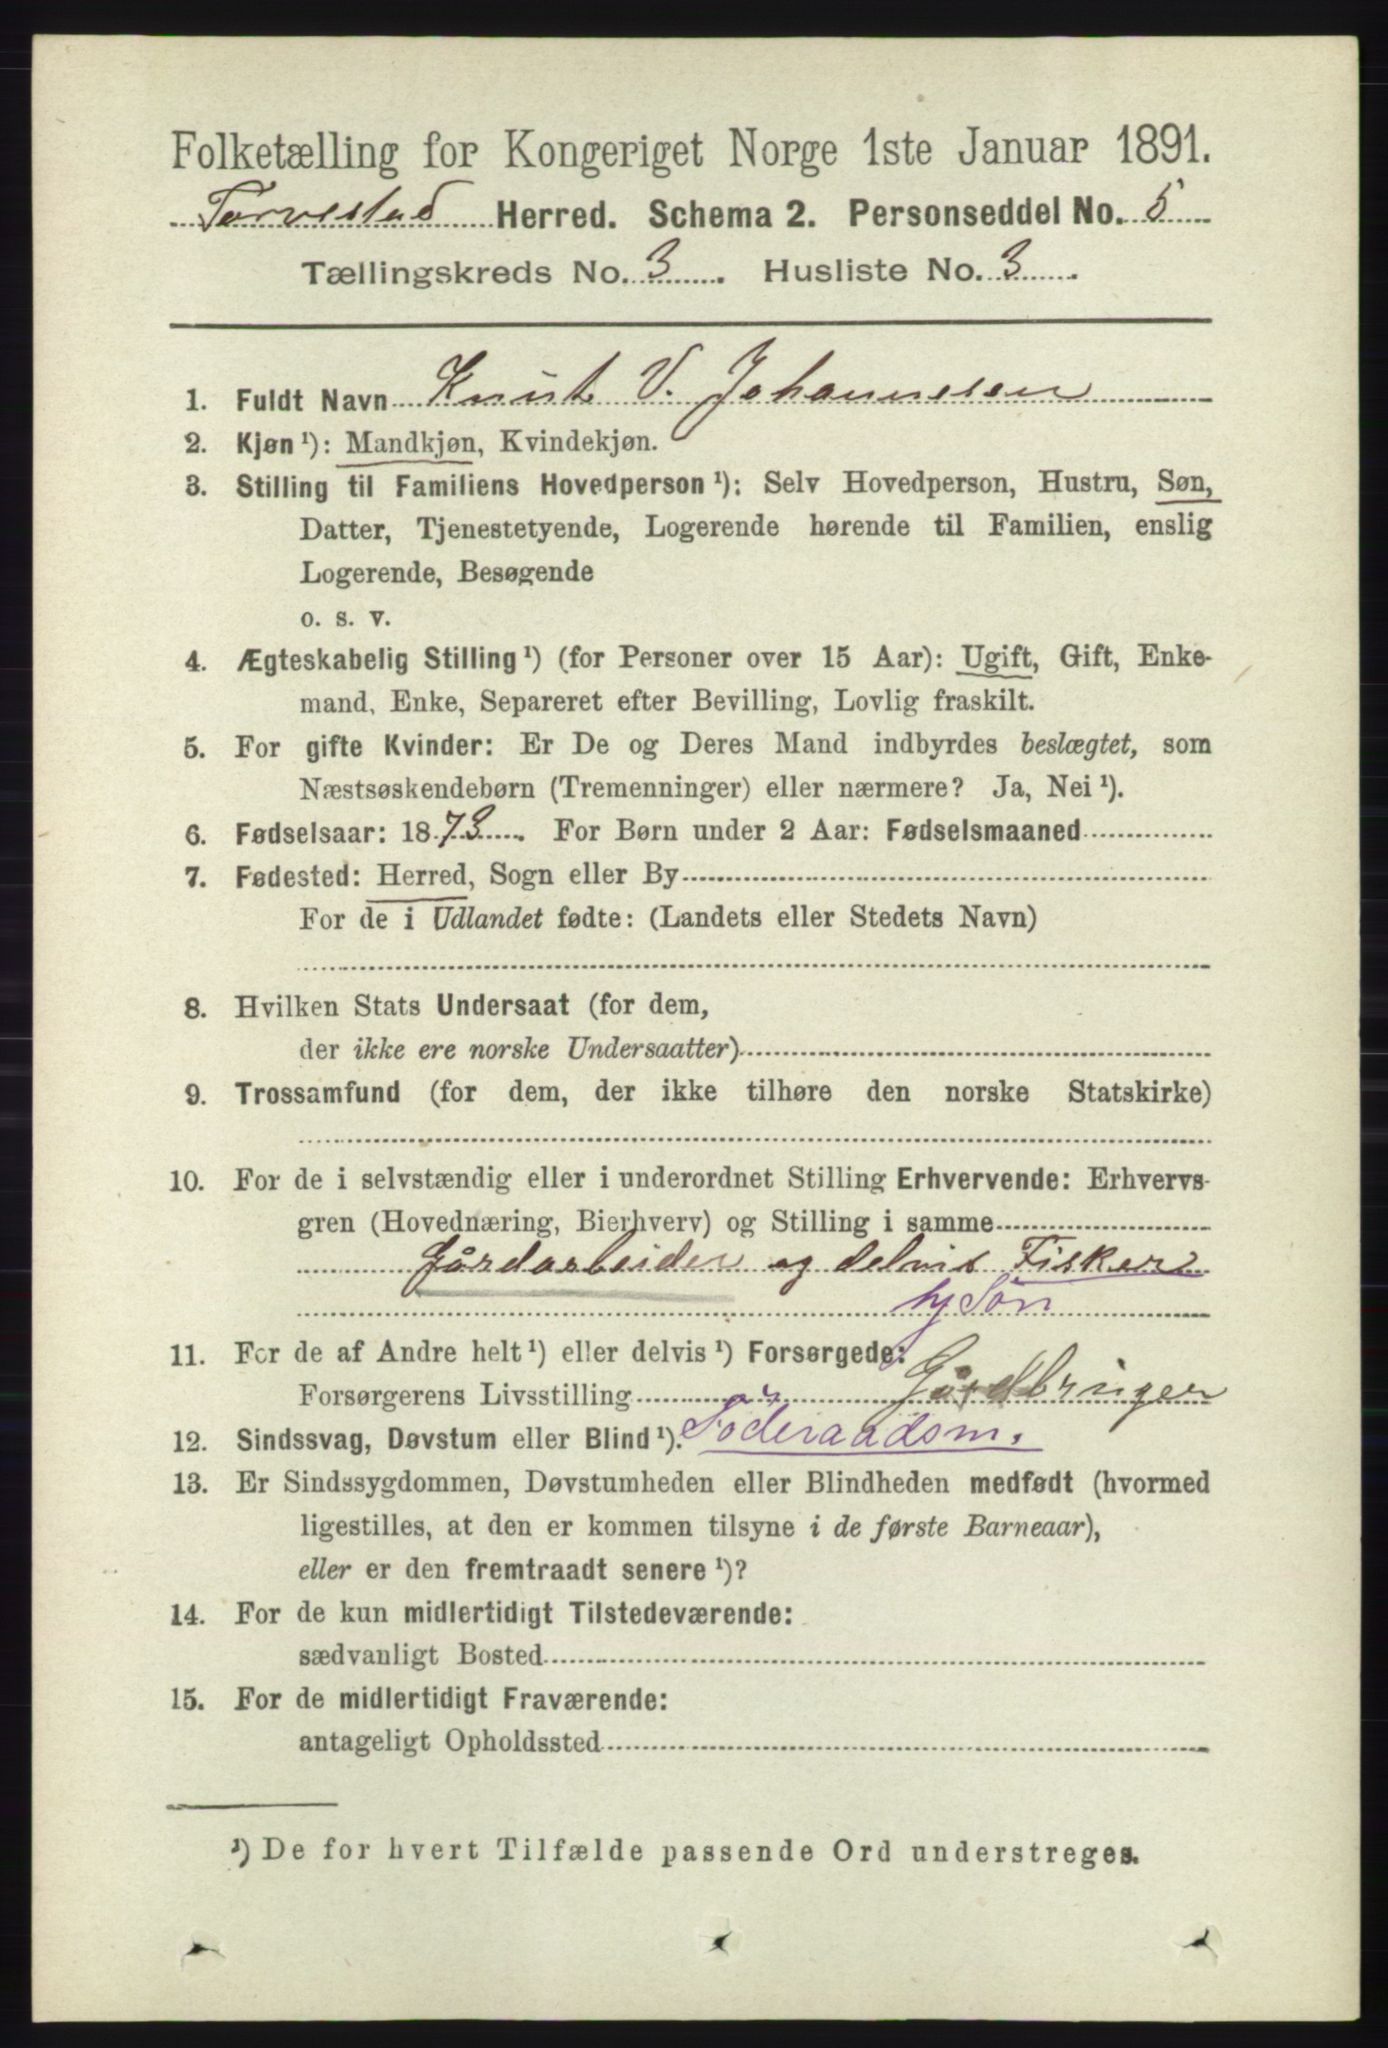 Folketælling for Kongeriget Norge 1ste Januar 1891.
Torvestad Herred. Schema 2. Personseddel No. 5
Tællingskreds No. 3. Husliste No. 3.
1. Fuldt Navn Knut V. Johannesen
2. Kjøn ¹): Mandkjøn, Kvindekjøn.
3. Stilling til Familiens Hovedperson ¹): Selv Hovedperson, Hustru, Søn,
Datter, Tjenestetyende, Logerende hørende til Familien, enslig
Logerende, Besøgende
o. s. v.
4. Ægteskabelig Stilling ¹) (for Personer over 15 Aar): Ugift, Gift, Enke-
mand, Enke, Separeret efter Bevilling, Lovlig fraskilt.
5. For gifte Kvinder: Er De og Deres Mand indbyrdes beslægtet, som
Næstsøskendebørn (Tremenninger) eller nærmere? Ja, Nei ¹).
6. Fødselsaar: 1873. For Børn under 2 Aar: Fødselsmaaned
7. Fødested: Herred, Sogn eller By
For de i Udlandet fødte: (Landets eller Stedets Navn)
8. Hvilken Stats Undersaat (for dem,
der ikke ere norske Undersaatter)
9. Trossamfund (for dem, der ikke tilhøre den norske Statskirke)
10. For de i selvstændig eller i underordnet Stilling Erhvervende: Erhvervs-
gren (Hovednæring, Bierhverv) og Stilling i samme
Gårdarbeider og delvis Fisker
hj Søn
11. For de af Andre helt ¹) eller delvis ¹) Forsørgede:
Forsørgerens Livsstilling Gårdbruger
12. Sindssvag, Døvstum eller Blind ¹). Føderaadsm.
13. Er Sindssygdommen, Døvstumheden eller Blindheden medfødt (hvormed
ligestilles, at den er kommen tilsyne i de første Barneaar),
eller er den fremtraadt senere ¹)?
14. For de kun midlertidigt Tilstedeværende:
sædvanligt Bosted
15. For de midlertidigt Fraværende:
antageligt Opholdssted
¹) De for hvert Tilfælde passende Ord understreges.